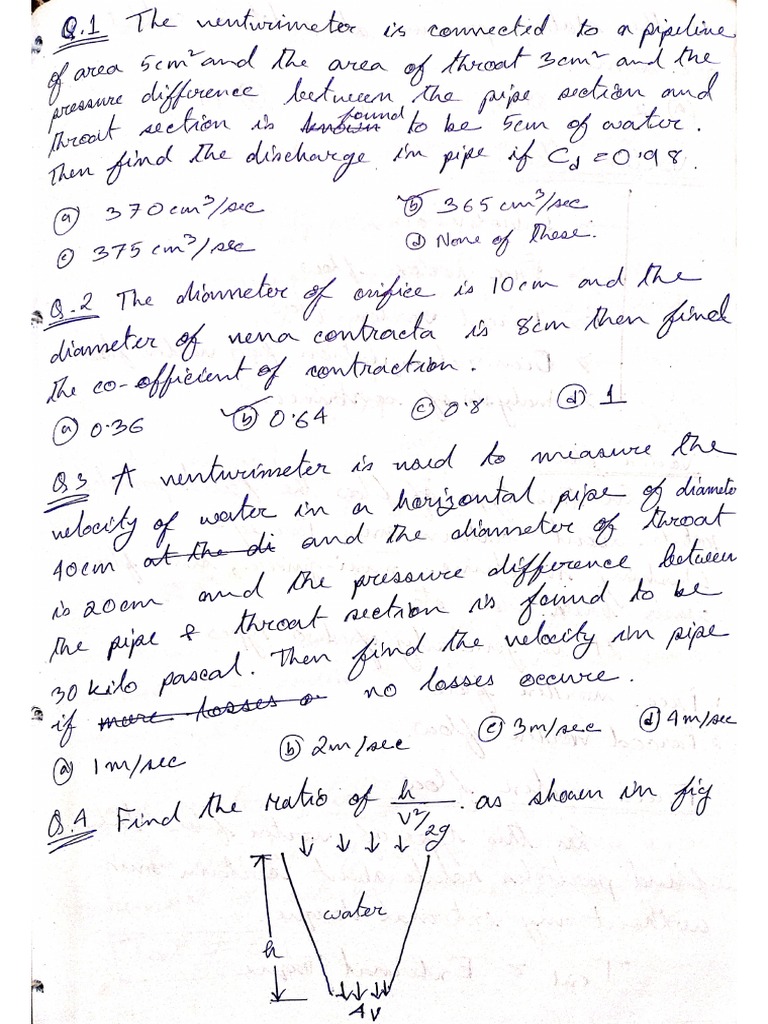 Q.1 The venturimeter is connected to a pipeline
of area 5cm² and the area of throat 3cm² and the
pressure difference between the pipe section and
throat section is known found to be 5cm of water.
Then find the discharge in pipe if Cd = 0.98.
(a) 370cm³/sec (b) 365cm³/sec
(c) 375cm³/sec (d) None of these.
Q.2 The diameter of orifice is 10cm and the
diameter of vena contracta is 8cm then find
the co-efficient of contraction.
(a) 0.36 (b) 0.64 (c) 0.8 (d) 1
Q3 A venturimeter is used to measure the
velocity of water in a horizontal pipe of diameter
40cm at the di and the diameter of throat
is 20cm and the pressure difference between
the pipe & throat section is found to be
30 kilo pascal. Then find the velocity in pipe
if more losses o no losses occure.
(a) 1m/sec (b) 2m/sec (c) 3m/sec (d) 4m/sec
Q.4 Find the ratio of h/V²/2g as shown in fig
water
h
4V